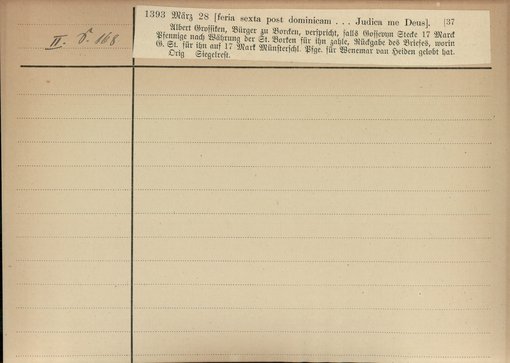 II. S. 168
1393 März 28 [feria sexta post dominicam . . . Judica me Deus]. [37
Albert Grossiken, Bürger zu Borcken, verspricht, falls Gosswyn Stecke 17 Marck
Pfennige nach Währung der St. Borken für ihn zahle, Rückgabe des Briefes, worin
G. St. für ihn auf 17 Mark Münsterschl. Pfge. für Wenemar van Heiden gelobt hat.
Orig Siegelrest.